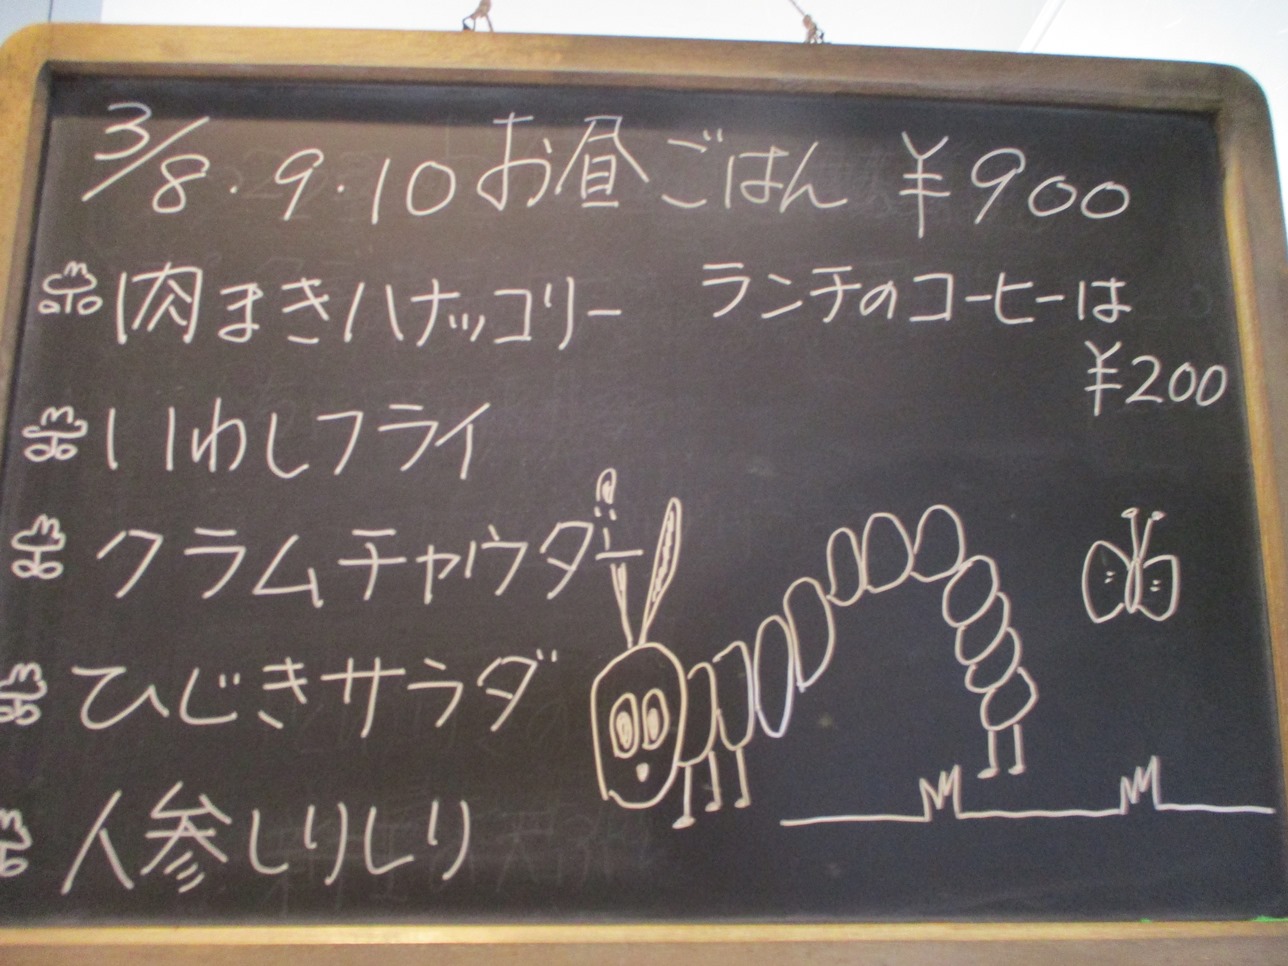 3/8・9・10 お昼ごはん ¥900
肉まきハナッコリー
ランチのコーヒーは
¥200
いわしフライ
クラムチャウダー
ひじきサラダ
人参しりしり